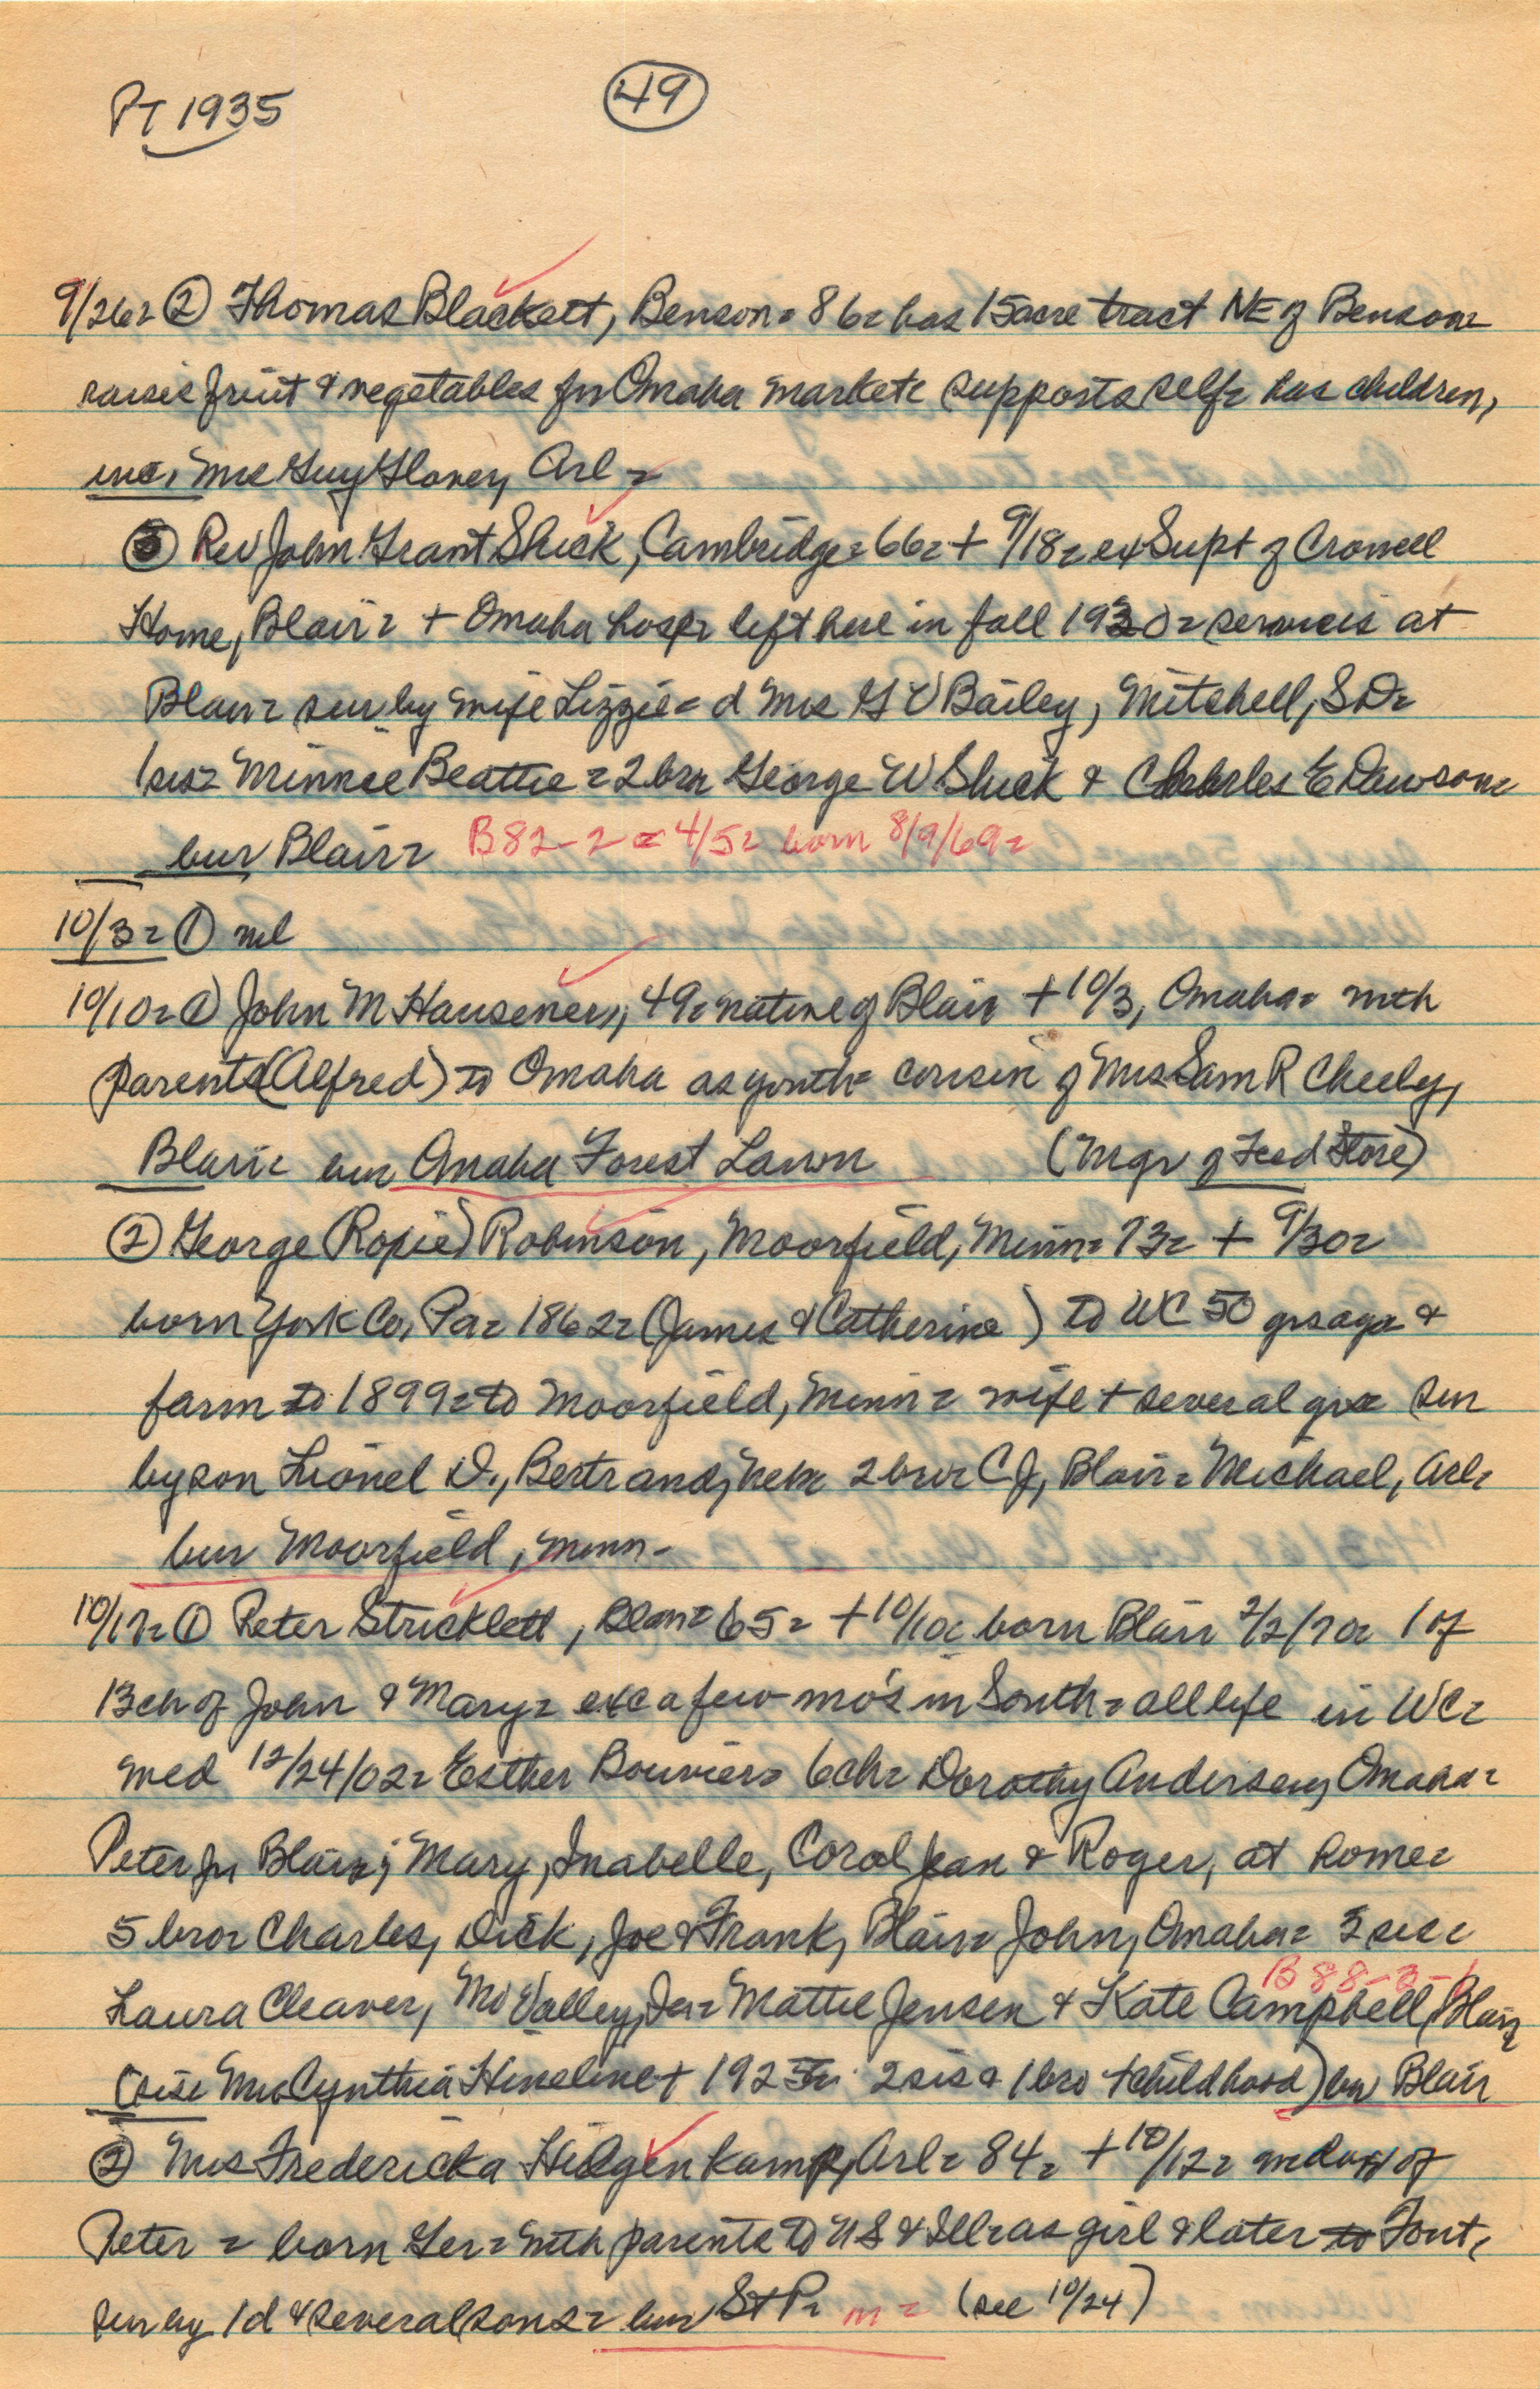 PT 1935
49
9/26= ② Thomas Blackett, Benson= 86= has 15 acre tract NE of Benson=
raises fruit & vegetables for Omaha market= supports self= has children,
inc. Mrs Guy Glover, Arl=
③ Rev John Grant Shick, Cambridge= 66= + 9/18= ex Supt of Crowell
Home, Blair= + Omaha hosp= left here in fall 1930= services at
Blair= sur by wife Lizzie= d Mrs G V Bailey, Mitchell, SD=
1 sis= Minnie Beattie= 2 bro George W Shick & Charles E Dawson=
bur Blair= B82-2= 4/5= born 8/9/69=
10/3= ① nil
10/10= ① John M Hausener, 49= native of Blair + 10/3, Omaha= with
parents (Alfred) to Omaha as youth= cousin of Mrs Sam R Cheely,
Blair= bur Omaha Forest Lawn (Mgr of Feed Store)
② George (Ropie) Robinson, Moorfield, Minn= 73= + 9/30=
born York Co, Pa= 1862= (James & Catherine) to WC 50 yrs ago &
farm to 1899= to Moorfield, Minn= wife + several yrs= sur
by son Lionel D., Bertrand, Neb= 2 bro= C J, Blair= Michael, Arl=
bur Moorfield, Minn-
10/17= ① Peter Stricklett, Blair= 65= + 10/10= born Blair 2/2/70= 1 of
13 ch of John & Mary= exc a few mo's in South= all life in WC=
med 12/24/02= Esther Bouvier= 6 ch= Dorothy Andersen, Omaha=
Peter Jr Blair; Mary, Inabelle, Corol Jean & Roger, at home=
5 bro= Charles, Dick, Joe & Frank, Blair= John, Omaha= 3 sis=
Laura Cleaver, Mo Valley, Ia= Mattie Jensen & Kate Campbell, Blair
B 88-3-1
(sis= Mrs Cynthia Hineline + 1925= 2 sis & 1 bro + childhood) bur Blair
② Mrs Fredericka Hilgenkamp, Arl= 84= + 10/12= widow of
Peter= born Ger= with parents to US & Ill= as girl & later to Font,
sur by 1 d & several sons= bur St P= m= (see 10/24)